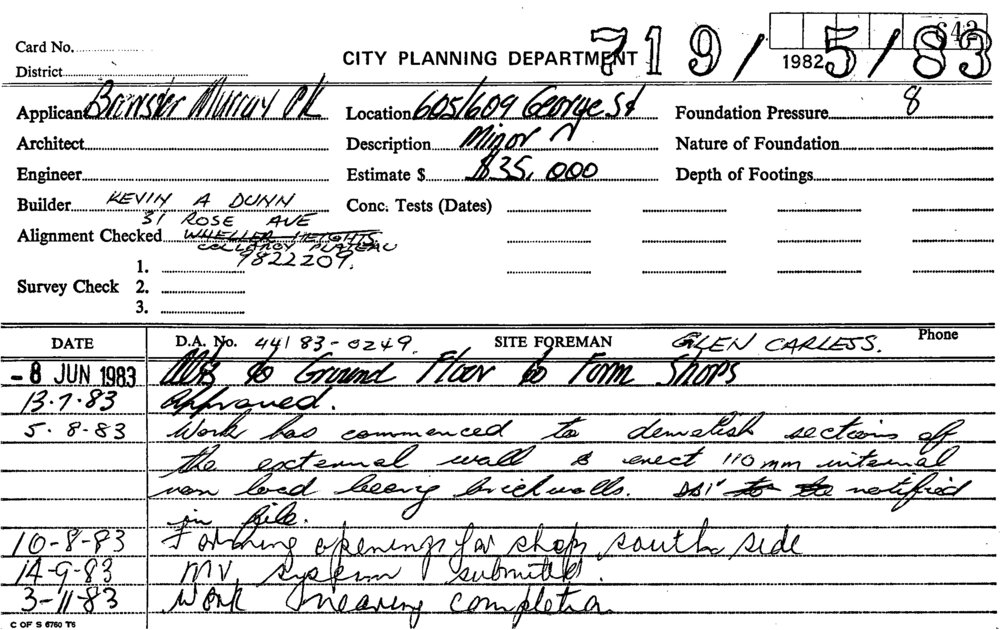 Card No.
642
District
CITY PLANNING DEPARTMENT
1982
719/5/83
Applicant Brewster Murray P/L
Location 605/609 George St
Foundation Pressure 8
Architect
Description Minor N
Nature of Foundation
Engineer
Estimate $ $35,000
Depth of Footings
Builder KEVIN A DUNN
Conc. Tests (Dates)
51 ROSE AVE
Alignment Checked WHEELER HEIGHTS
COLLAROY PLATEAU
9822209.
1.
Survey Check 2.
3.
DATE
D.A. No. 44 83-0249.
SITE FOREMAN GLEN CARLESS.
Phone
- 8 JUN 1983 Alts to Ground Floor to Form Shops
13.7.83 Approved.
5.8.83 Work has commenced to demolish sections of
the external wall & erect 110mm internal
non load bearing brickwalls. to be notified
in file.
10-8-83 Forming openings for shop south side
14-9-83 MV system submitted.
3-11-83 Work nearing completion
C OF S 6760 T6